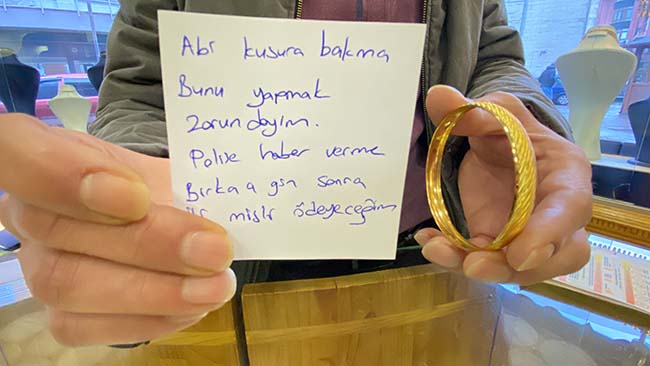 Abi kusura bakma
Bunu yapmak
zorundayım.
Polise haber verme
Birkaç gün sonra
mislir ödeyeceğim